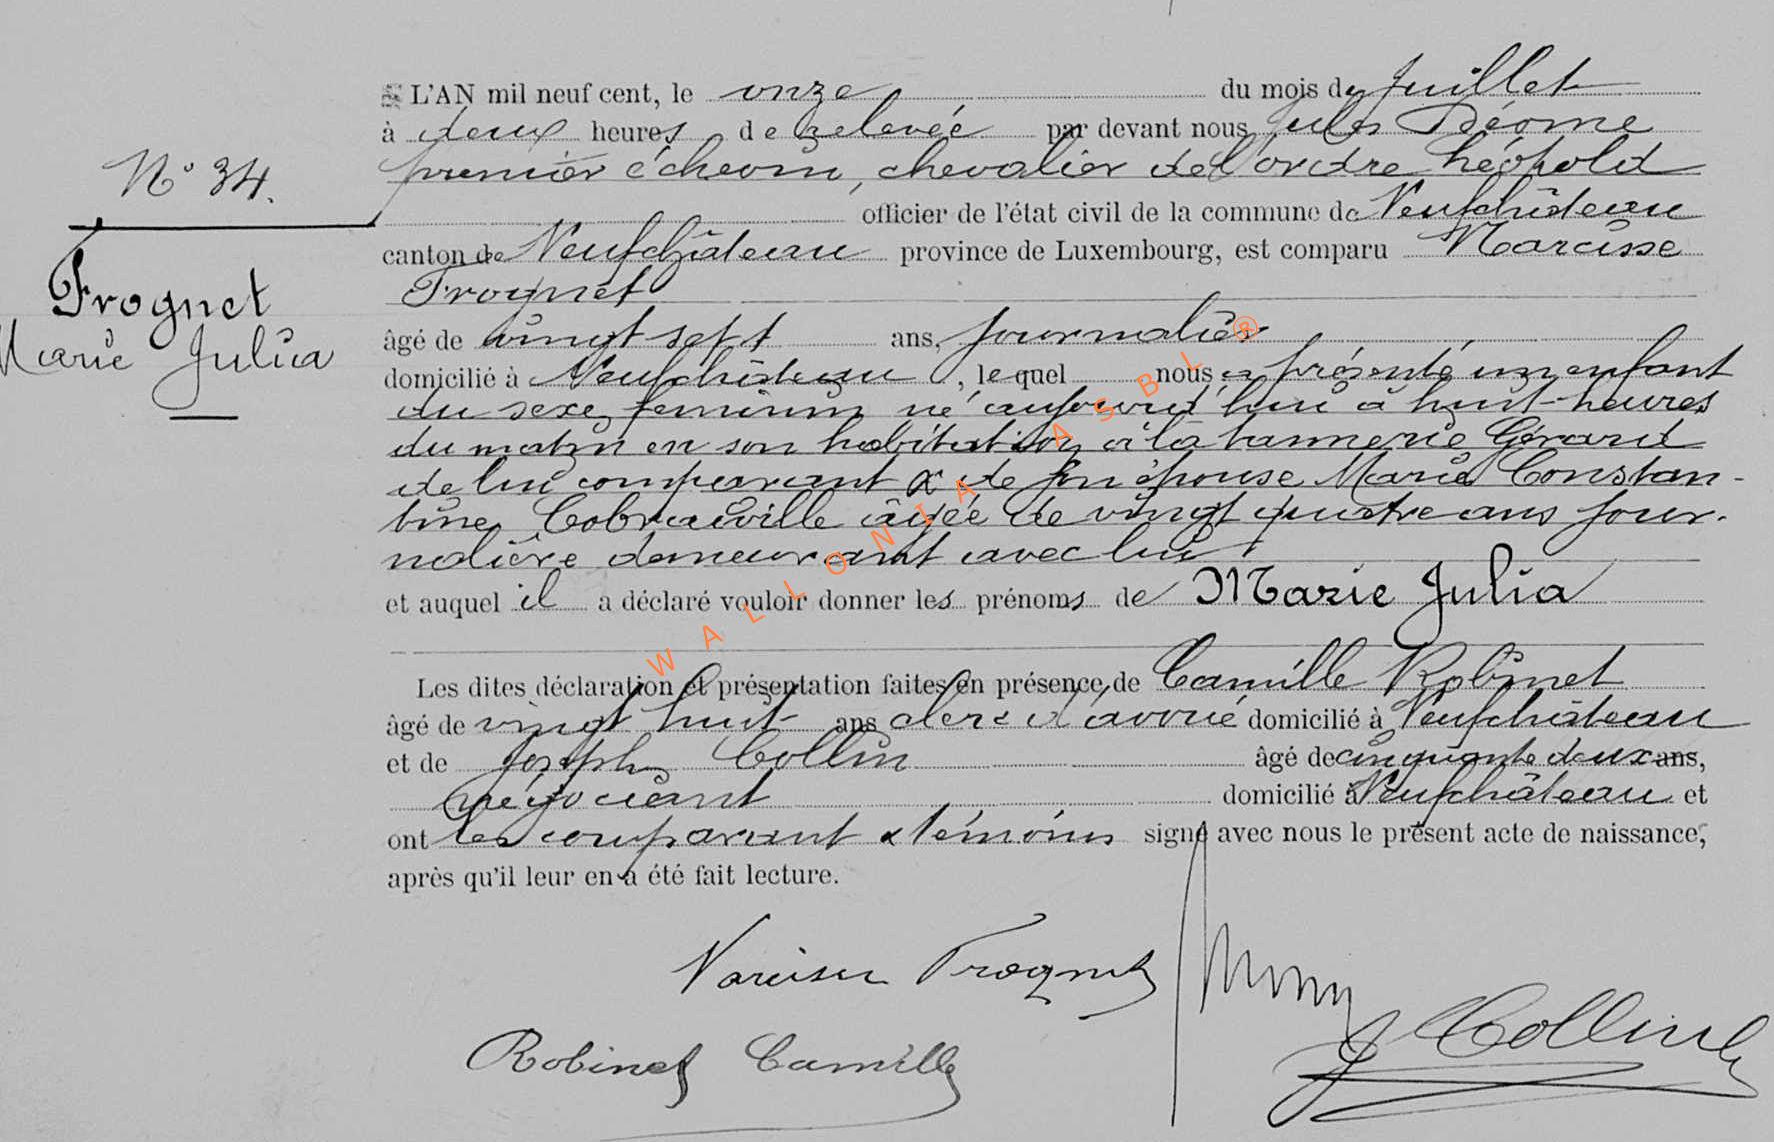 L'AN mil neuf cent, le onze du mois de Juillet
à deux heures de relevée par devant nous Jules Déome
N° 34.
premier échevin, chevalier de l'ordre Léopold
officier de l'état civil de la commune de Neufchâteau
canton de Neufchâteau province de Luxembourg, est comparu Narcisse
Frognet
Frognet
Marie Julia
âgé de vingt sept ans, journalier
domicilié à Neufchâteau, lequel nous a présenté un enfant
du sexe féminin né aujourd'hui à huit heures
du matin en son habitation à la tannerie Gérard
de lui comparant & de son épouse Marie Constan-
tine Cobraiville âgée de vingt quatre ans jour-
nalière demeurant avec lui
et auquel il a déclaré vouloir donner les prénoms de Marie Julia
Les dites déclaration et présentation faites en présence de Camille Robinet
âgé de vingt huit ans clerc d'avoué domicilié à Neufchâteau
et de Joseph Collin âgé de cinquante deux ans,
négociant domicilié à Neufchâteau et
ont les comparant & témoins signé avec nous le présent acte de naissance,
après qu'il leur en a été fait lecture.
Narcisse Frognet
Robinet Camille
J Collin
WALLONIA ASBL ®